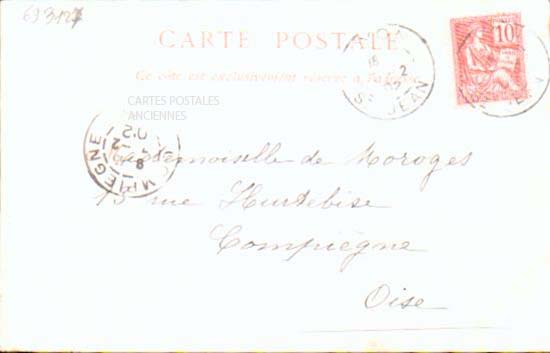 CARTE POSTALE
Ce côté est exclusivement réservé à l'adresse
CARTES POSTALES
ANCIENNES
10
ST JEAN
Mademoiselle de Moroges
15 rue Hurtebise
Compiègne
Oise